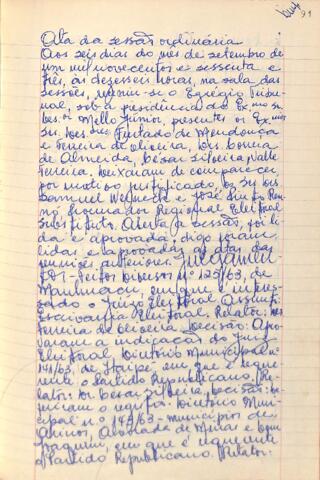 91
Ata da sessão ordinária
Aos seis dias do mês de setembro de
um mil novecentos e sessenta e
três, às dezesseis horas, na sala das
sessões, reuniu-se o Egrégio Tribu-
nal, sob a presidência do Exmo. Sr.
Des. Mello Júnior, presentes os Exmos
Srs. Des. Furtado de Mendonça
e Ferreira de Oliveira, Drs. Correa
de Almeida, César Silveira, Valle
Ferreira. Deixaram de comparecer,
por motivo justificado, os Srs. Drs.
Samuel e José
Procurador Regional Eleitoral
Substituto. Aberta a sessão, foi li-
da e aprovada, digo foram
lidas e aprovadas as atas das
reuniões anteriores. Julgamen-
tos - Feitos Diversos nº 125/63, de
Manhuaçu, em que é interes-
sado o Juízo Eleitoral. Assunto:
Escrivania Eleitoral. Relator: Des.
Ferreira de Oliveira. Decisão: Apro-
varam a indicação do Juiz
Eleitoral. Diretório Municipal nº
141/63, de Itaipé, em que é reque-
rente o Partido Republicano. Re-
lator: Dr. César Silveira. Decisão: De-
feriram o registro. Diretório Muni-
cipal nº 143/63 - municípios de
Abadia de Minas e
em que é requerente
o Partido Republicano. Relator: